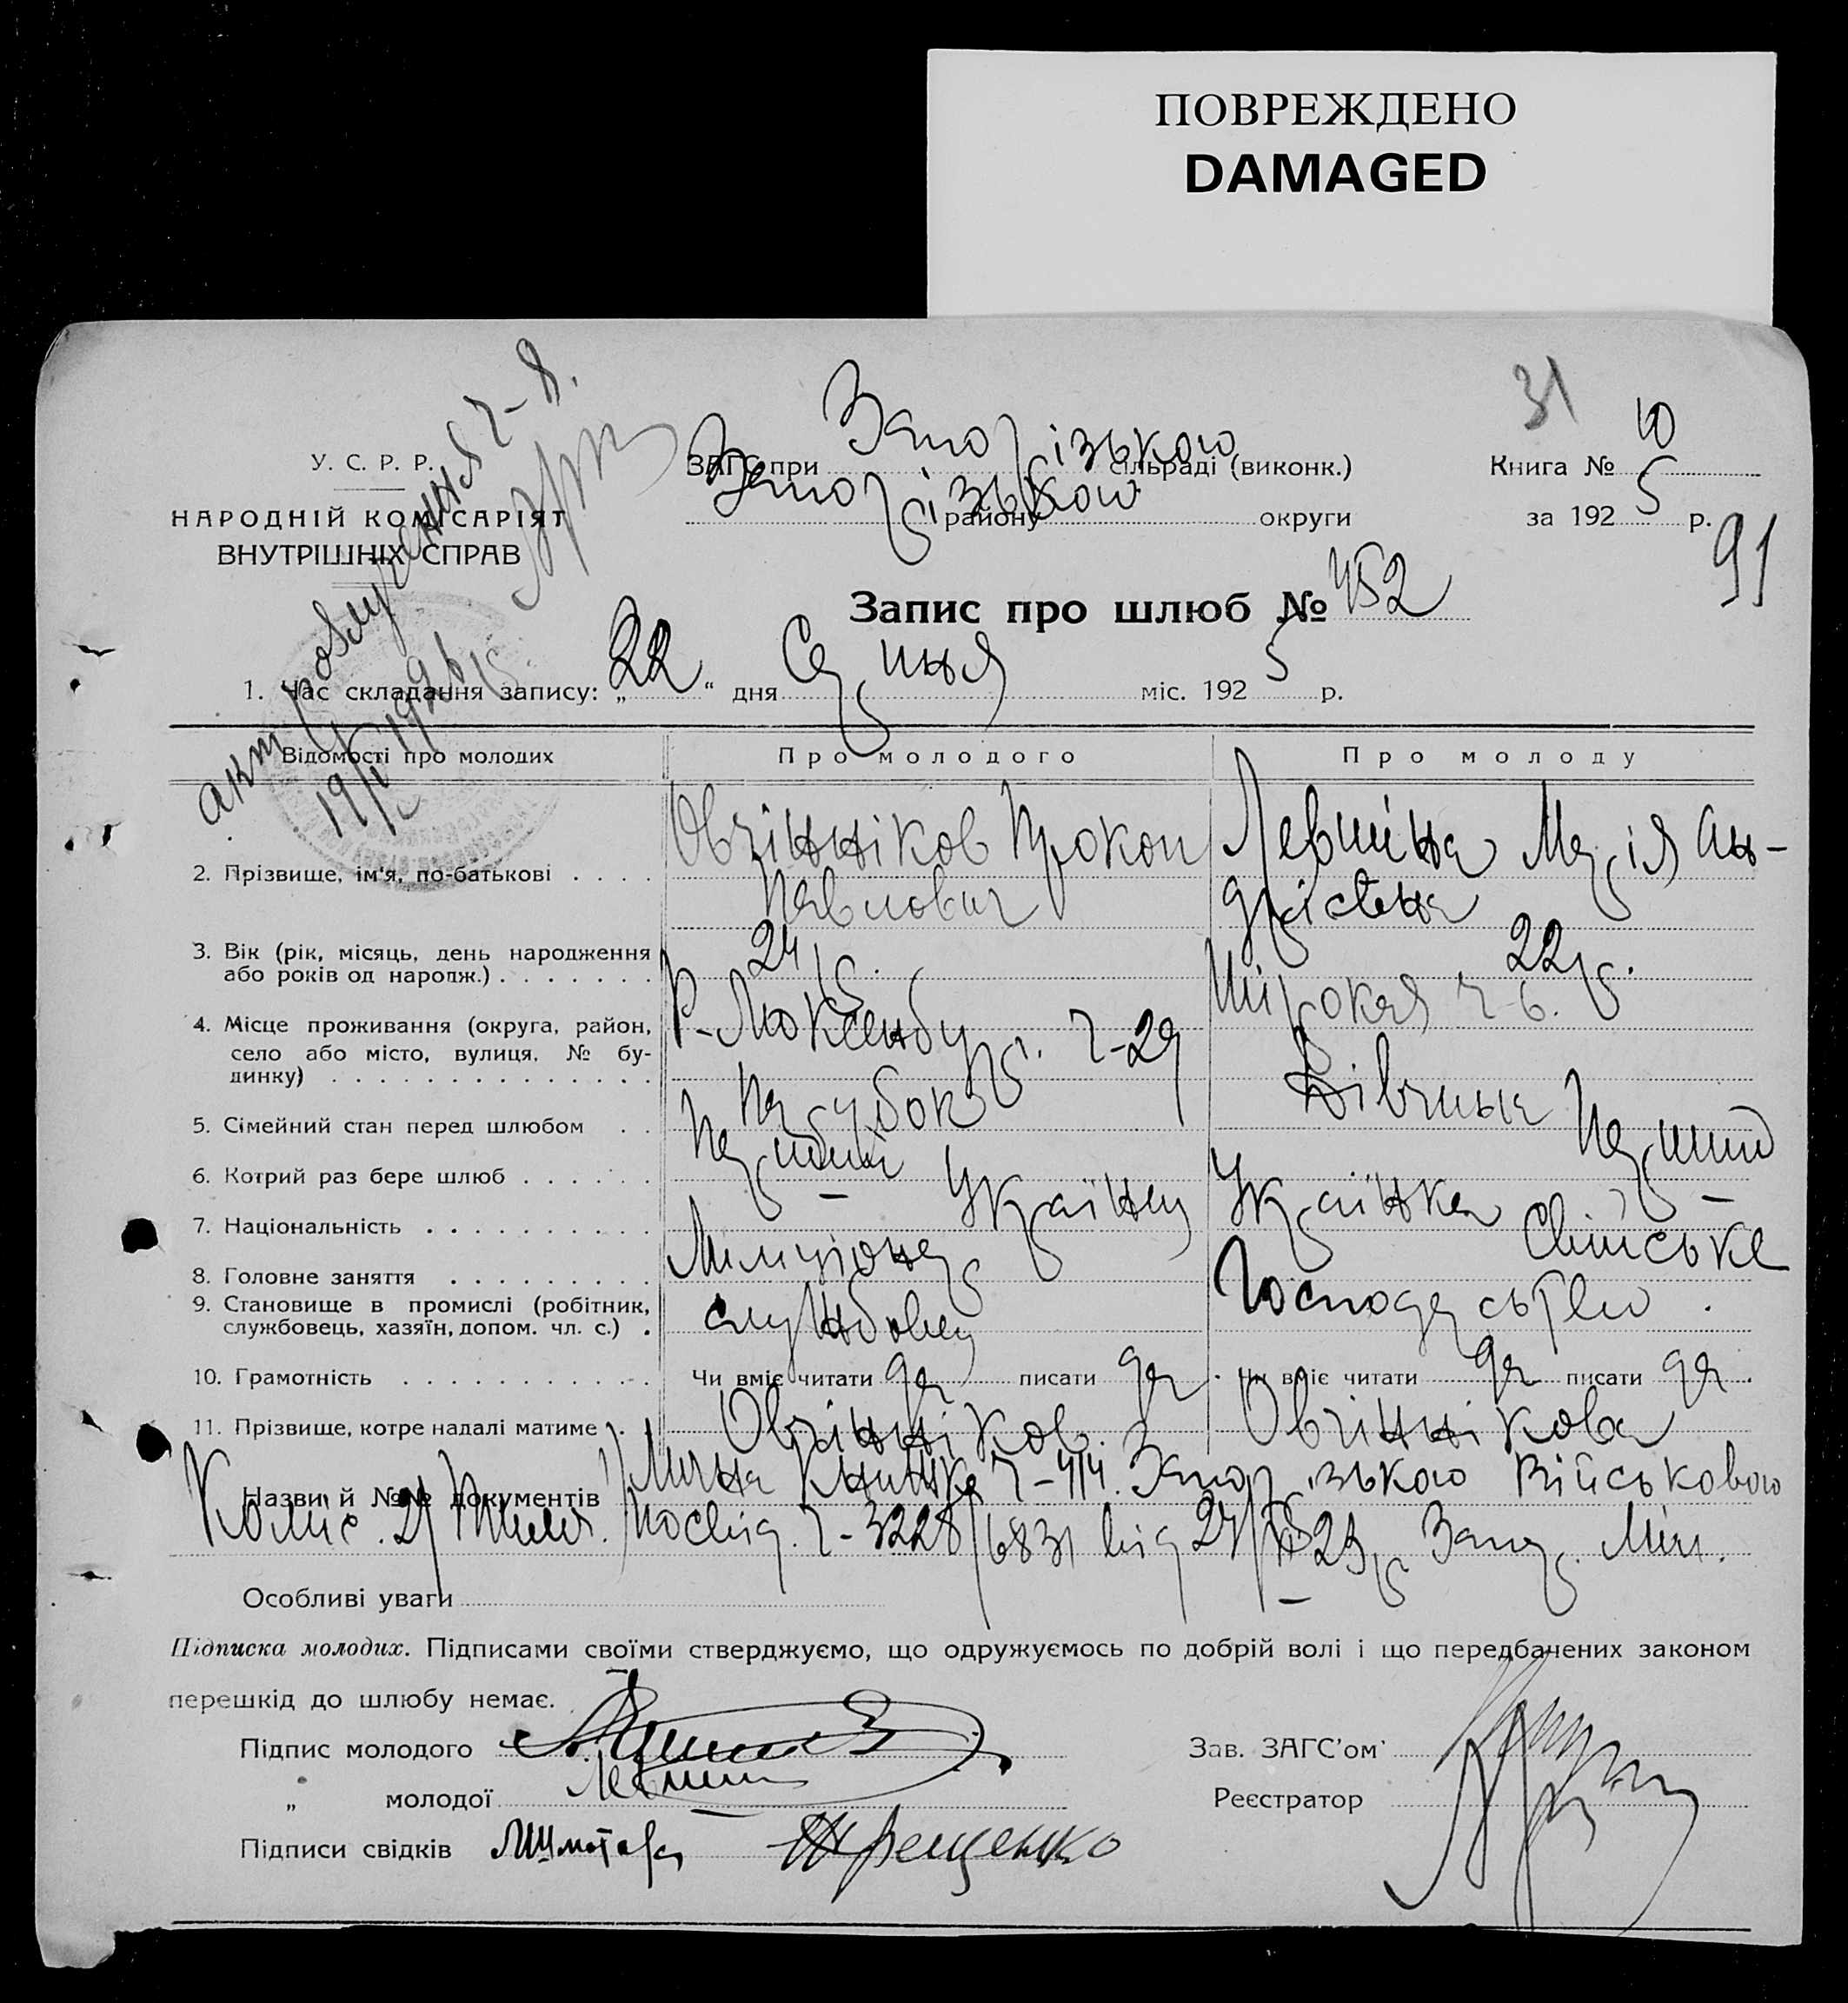 ПОВРЕЖДЕНО
DAMAGED
31
У. С. Р. Р.
НАРОДНІЙ КОМІСАРІЯТ
ВНУТРІШНІХ СПРАВ
ЗАГС при Запорізького сільраді (виконк.)
Запорізького району округи
Книга № 10
за 1925 р.
91
Запис про шлюб № 452
1. Час складання запису: „22“ дня Серпня міс. 1925 р.
Відомості про молодих Про молодого Про молоду
2. Прізвище, ім'я, по-батькові . . . . Овчінніков Прокоп Павлович Левшіна Марія Андріївна
3. Вік (рік, місяць, день народження
або років од народж.) . . . . . . . 24 р. 22 р.
4. Місце проживання (округа, район,
село або місто, вулиця, № бу-
динку) . . . . . . . . . . . . . . Р-Люксенбург. ч-29 Широкая ч-6.
5. Сімейний стан перед шлюбом . . Парубок Дівчина
6. Котрий раз бере шлюб . . . . . . Перший Перший
7. Національність . . . . . . . . . . Українец Українка
8. Головне заняття . . . . . . . . . Міліціонер Свійське
9. Становище в промислі (робітник,
службовець, хазяїн, допом. чл. с.) . службовец Господарство.
10. Грамотність . . . . . . . . . . . Чи вміє читати да писати да. Чи вміє читати да писати да.
11. Прізвище, котре надалі матиме . Овчінніков. Овчіннікова
Назви й №№ документів 1/ Лична Книжка ч-414. Запорізького Військового
Коміс. 2/ Посвід. ч-3228/6831 від Запор. Міл.
Особливі уваги
Підписка молодих. Підписами своїми стверджуємо, що одружуємось по добрій волі і що передбачених законом
перешкід до шлюбу немає.
Підпис молодого
„ молодої
Підписи свідків
Зав. ЗАГС'ом
Реєстратор